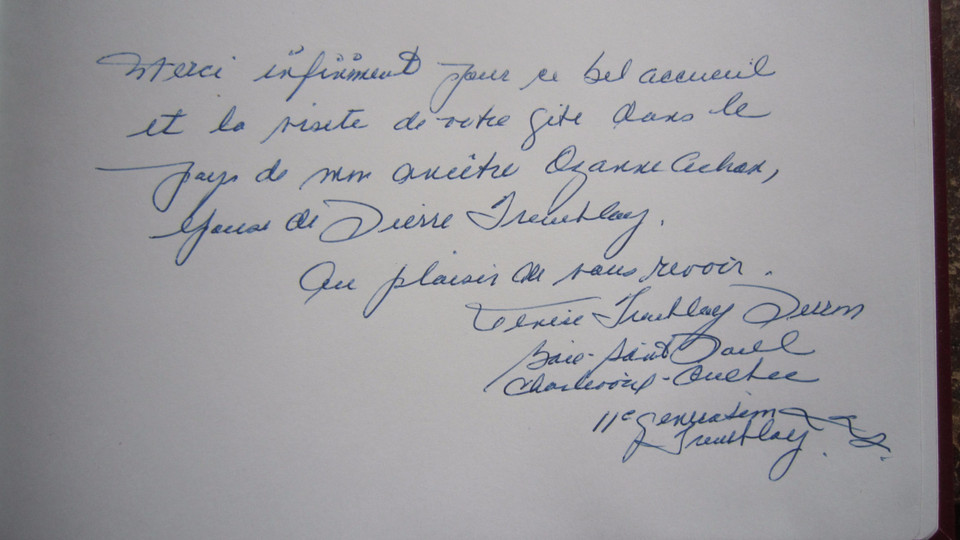 Merci infiniment pour ce bel accueil
et la visite de votre gite dans le
pays de mon ancêtre Ozanne Achon,
épouse de Pierre Tremblay.
Au plaisir de vous revoir.
Tremblay
Baie-Saint Paul
Charlevoix - Québec
11e génération
Tremblay.